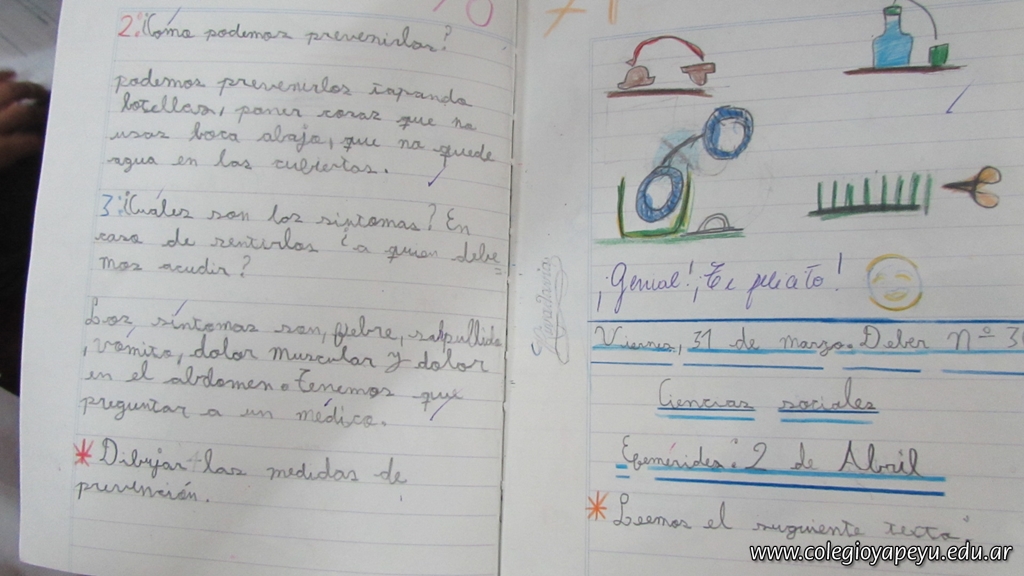 70
2: ¿Cómo podemos prevenirlos?
podemos prevenirlos tapando
botellas, poner cosas que no
usas boca abajo, que no quede
agua en las cubiertas.
3: ¿Cuáles son los síntomas? En
caso de sentirlos ¿a quien debe=
mos acudir?
Los síntomas son, fiebre, salpullido
, vómito, dolor muscular y dolor
en el abdomen. Tenemos que
preguntar a un médico.
* Dibujar las medidas de
prevención.
71
¡Genial! ¡Te felicito!
Viernes, 31 de marzo. Deber Nº 3
Ciencias sociales
Efemérides: 2 de Abril
* Leemos el siguiente texto:
www.colegioyapeyu.edu.ar